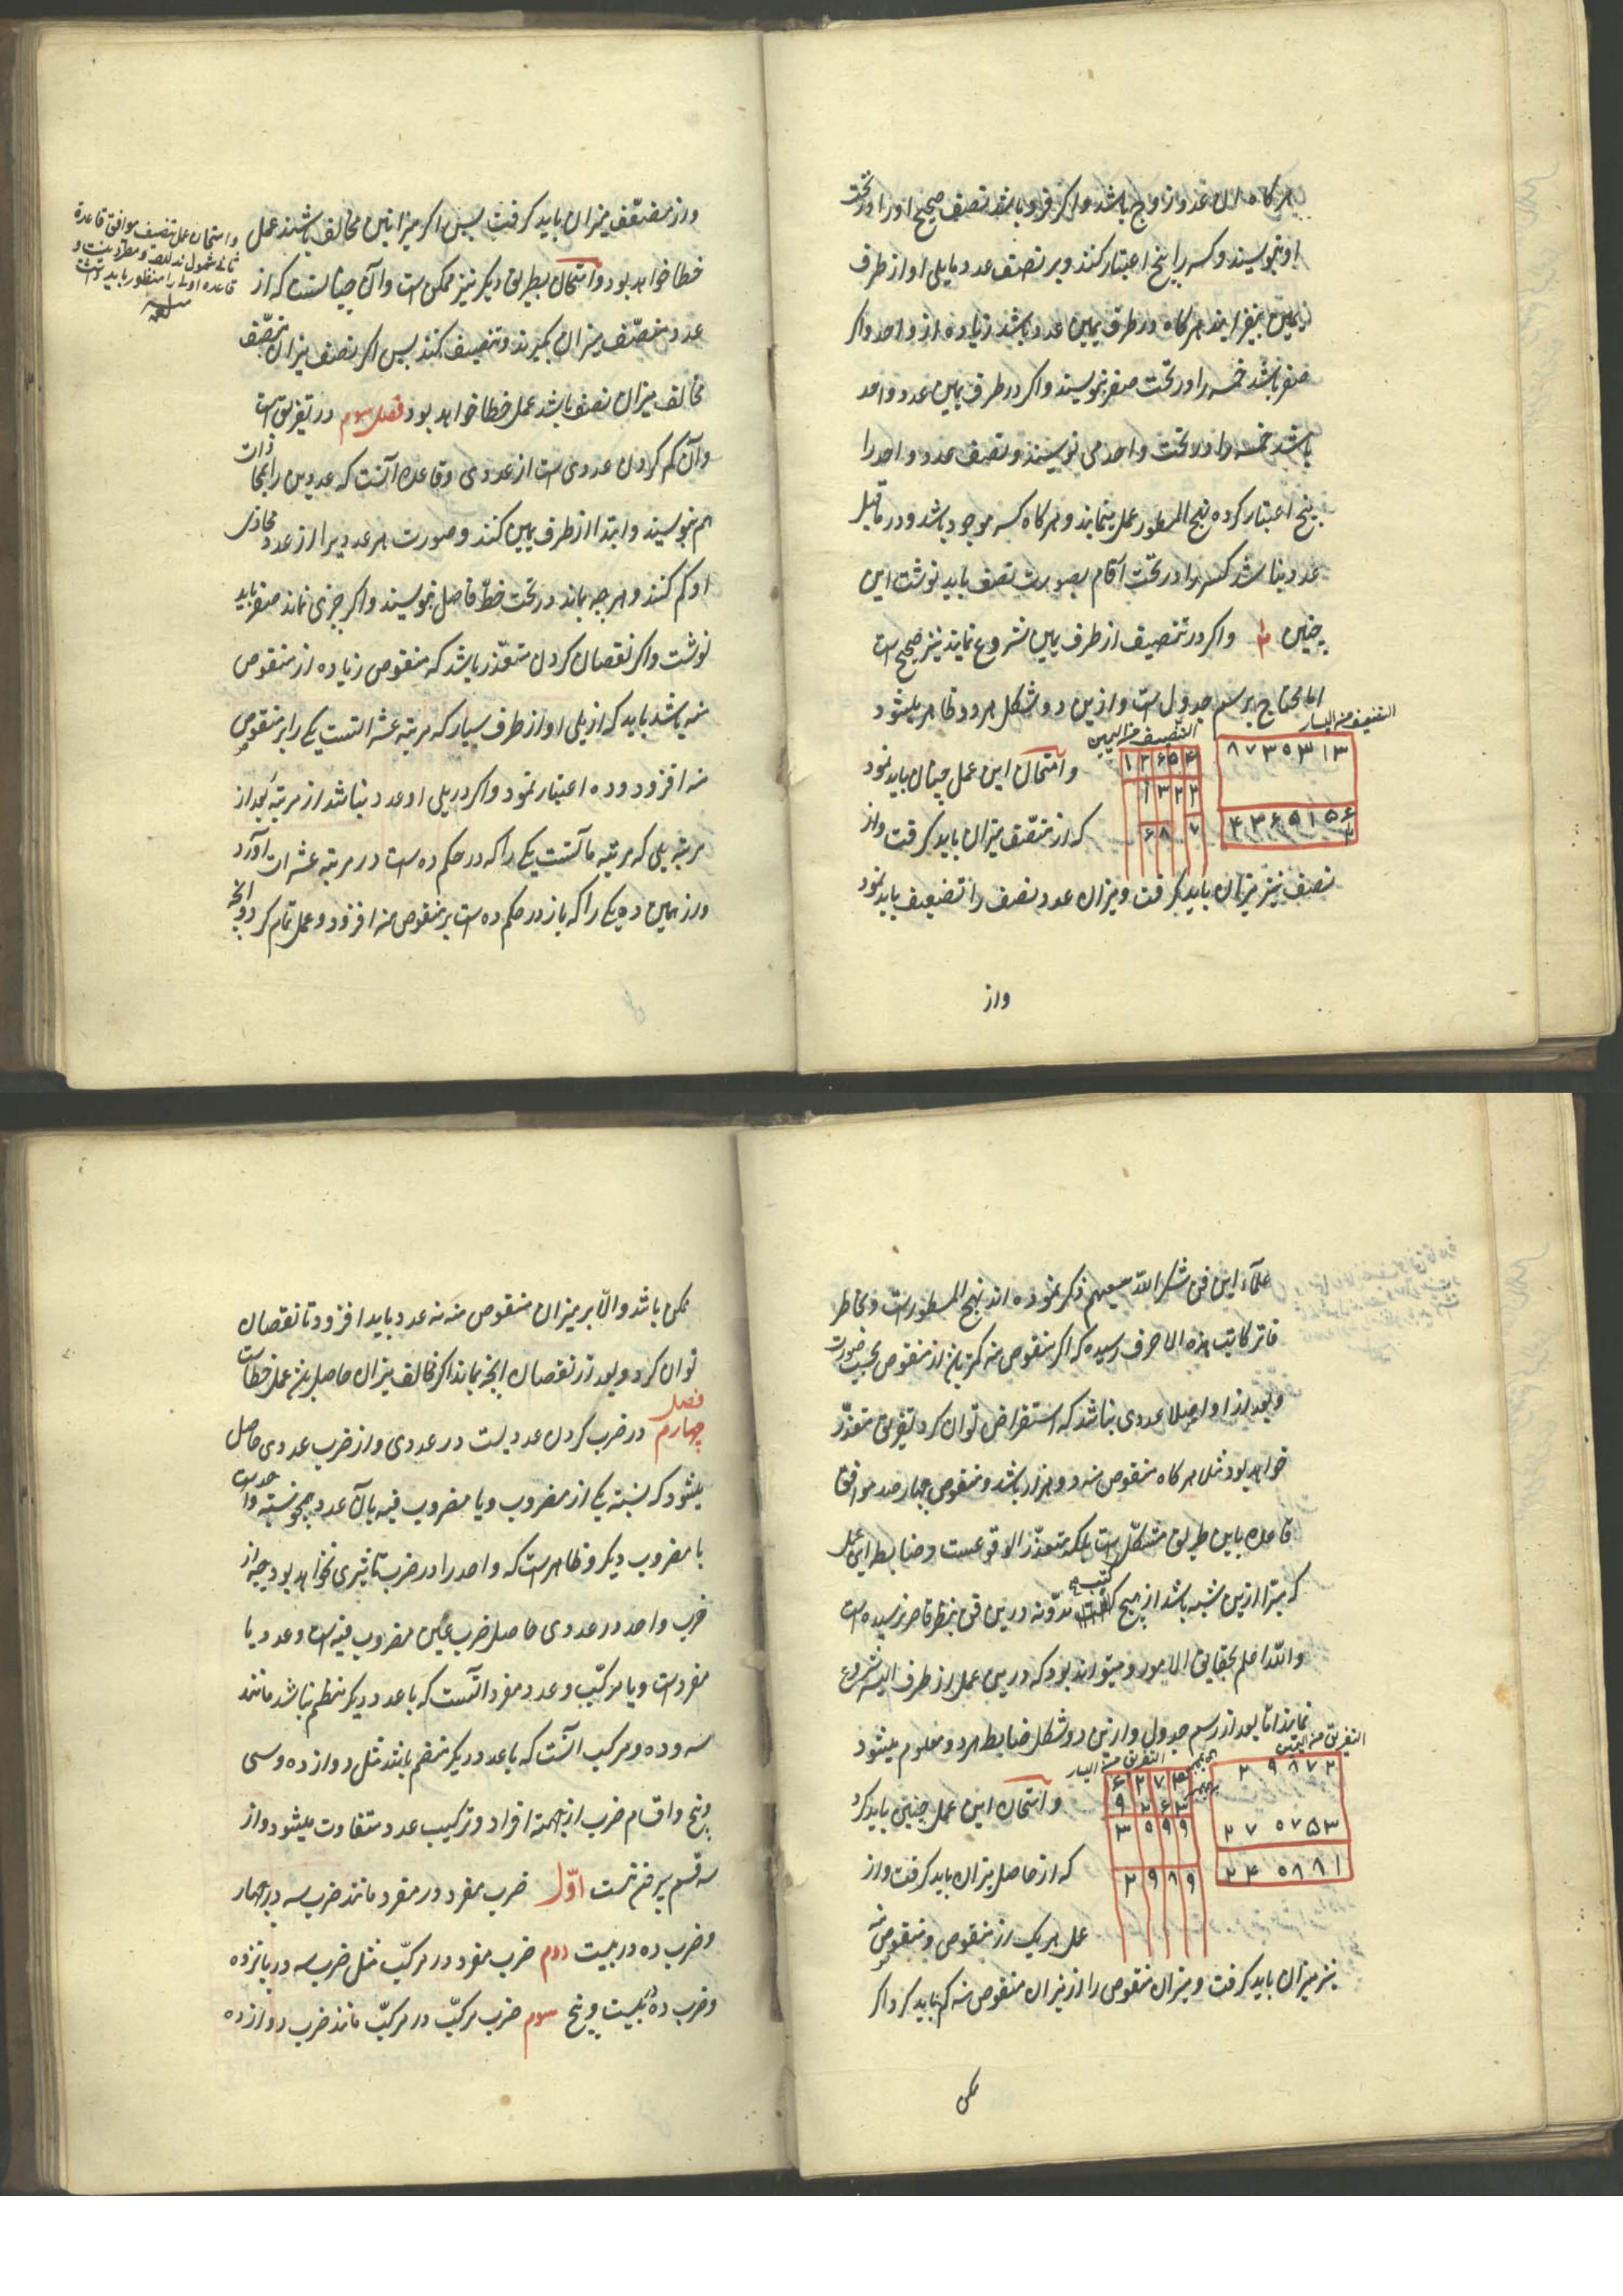 هر کاه آن عدد زوج باشد و اکر فرد باشد نصف صحیح او را در تحت
او بنویسند و کسر را پنج اعتبار کنند و بر نصف عدد مایلی او از طرف
یمین بیفزایند هر کاه در طرف یمین عدد باشد زیاده از واحد و اکر
صفر باشد خمسه را در تحت صفر بنویسند و اکر در طرف یمین عدد واحد
باشد خمسه را در تحت واحد می نویسند و نصف عدد واحد را
پنج اعتبار کرده بنهج المسطور عمل ینمایند و هر کاه کسر موجود باشد و در ماقبل
عددی نباشد کسر را در تحت ارقام بصورت نصف باید نوشت این
چنین ۲ و اکر در تنصیف از طرف یمین شروع نمایند نیز صحیح است
اما محتاج برسم جدول است و ازین دو شکل هر دو ظاهر میشود
التنصیف من الیسار
۸ ۷ ۳ ۵ ۳ ۱ ۳
۴ ۳ ۶ ۵ ۱ ۵ ۶
۲
التنصیف من الیمین
۱ ۳ ۶ ۵ ۴
۱ ۳ ۲ ۲
۶ ۸ ۷
و امتحان این عمل چنان باید نمود
که از منصّف میزان باید کرفت و از
نصف نیز میزان باید کرفت و میزان عدد نصف را تضعیف باید نمود
واز
واز مضعّف میزان باید کرفت پس اکر میزانین مخالف باشند عمل
خطا خواهد بود و امتحان بطریق دیکر نیز ممکن است و آن چنانست که از
عدد منصّف میزان بکیرند و تنصیف کنند پس اکر نصف میزان منصّف
مخالف میزان نصف باشد عمل خطا خواهد بود فصل سوم در تفریق است
و آن کم کردن عددی است از عددی و قاعده آنست که عددین را بمحاذات
هم بنویسند و ابتدا از طرف یمین کنند و صورت هر عددیرا از عدد محاذی
او کم کنند و هر چه بماند در تحت خطّ فاصل بنویسند و اکر چیزی نماند صفر باید
نوشت و اکر نقصان کردن متعذّر باشد که منقوص زیاده از منقوص
منه باشد باید که از یلی او از طرف یسار که مرتبه عشراتست یکے را بر منقوص
منه افزود و ده اعتبار نمود و اکر در یلی او عدد نباشد از مرتبه بعد از
مرتبه یلی که مرتبه مآتست یکے را که در حکم ده است در مرتبه عشرات آورد
و از همین ده یکے را که باز در حکم ده است بر منقوص منه افزود و عمل تمام کرد و آنچه
و امتحان عمل تنصیف موافق قاعدهٔ
قاعده اولی را منظور باید داشت
علمآء این فن شکر الله سعیهم ذکر نموده اند نهج المسطور است و بخاطر
فاتر کاتب هذه الاحرف رسیده که اکر منقوص منه کمتر باشد از منقوص بحسب صورت
و بعد از او اصلا عددی نباشد که استقراض توان کرد تفریق متعذّر
خواهد بود مثلا هر کاه منقوص منه دو هزار باشد و منقوص چهار صد موافق
قاعده باین طریق مشکّل است بلکه متعذّر الوقوعست و ضابطه این عمل
که مبّرا ازین شبه باشد از هیچ کتب مدّونه درین فن بنظر قاصر نرسیده است
والله اعلم بحقایق الامور و میتواند بود که درین عمل از طرف یسار شروع
نمایند اما بعد از رسم جدول و ازین دو شکل ضابطه هر دو معلوم میشود
التفریق من الیمین
۲ ۹ ۸ ۷ ۲
۲ ۷ ۵ ۷ ۵ ۳
۲ ۴ ۵ ۸ ۸ ۱
التفریق من الیسار
۶ ۲ ۷ ۳
۹ ۲ ۶ ۳
۳ ۵ ۹ ۹
۲ ۹ ۸ ۹
و امتحان این عمل چنین باید کرد
که از حاصل میزان باید کرفت و از
عمل هر یک از منقوص و منقوص منه
نیز میزان باید کرفت و میزان منقوص را از میزان منقوص منه کم باید کرد اکر
ممکن
ممکن باشد والّا بر میزان منقوص منه نه عدد باید افزود تا نقصان
توان کرد و بعد از نقصان آنچه بماند اکر مخالف میزان حاصل باشد عمل خطاست
فصل
چهارم در ضرب کردن عددیست در عددی و از ضرب عددی حاصل
میشود که نسبة یکے از مضروب و یا مضروب فیه بآن عدد همچو نسبت واحد است
با مضروب دیکر و ظاهر است که واحد را در ضرب تاثیری نخواهد بود چه از
ضرب واحد در عددی حاصل ضرب عین مضروب فیه است و عدد یا
مفرد است و یا مرکّب و عدد مفرد آنست که با عدد دیکر منظم نباشد مانند
سه و ده و مرکب آنست که با عدد دیکر منضم باشد مثل دوازده و سی
و پنج و اقسام ضرب از جهة افراد و ترکیب عدد متفاوت میشود و از
سه قسم بیرون نیست اوّل ضرب مفرد در مفرد مانند ضرب سه در چهار
و ضرب ده در بیست دوم ضرب مفرد در مرکّب مثل ضرب سه در پانزده
و ضرب ده در بیست و پنج سوم ضرب مرکّب در مرکّب مانند ضرب دوازده